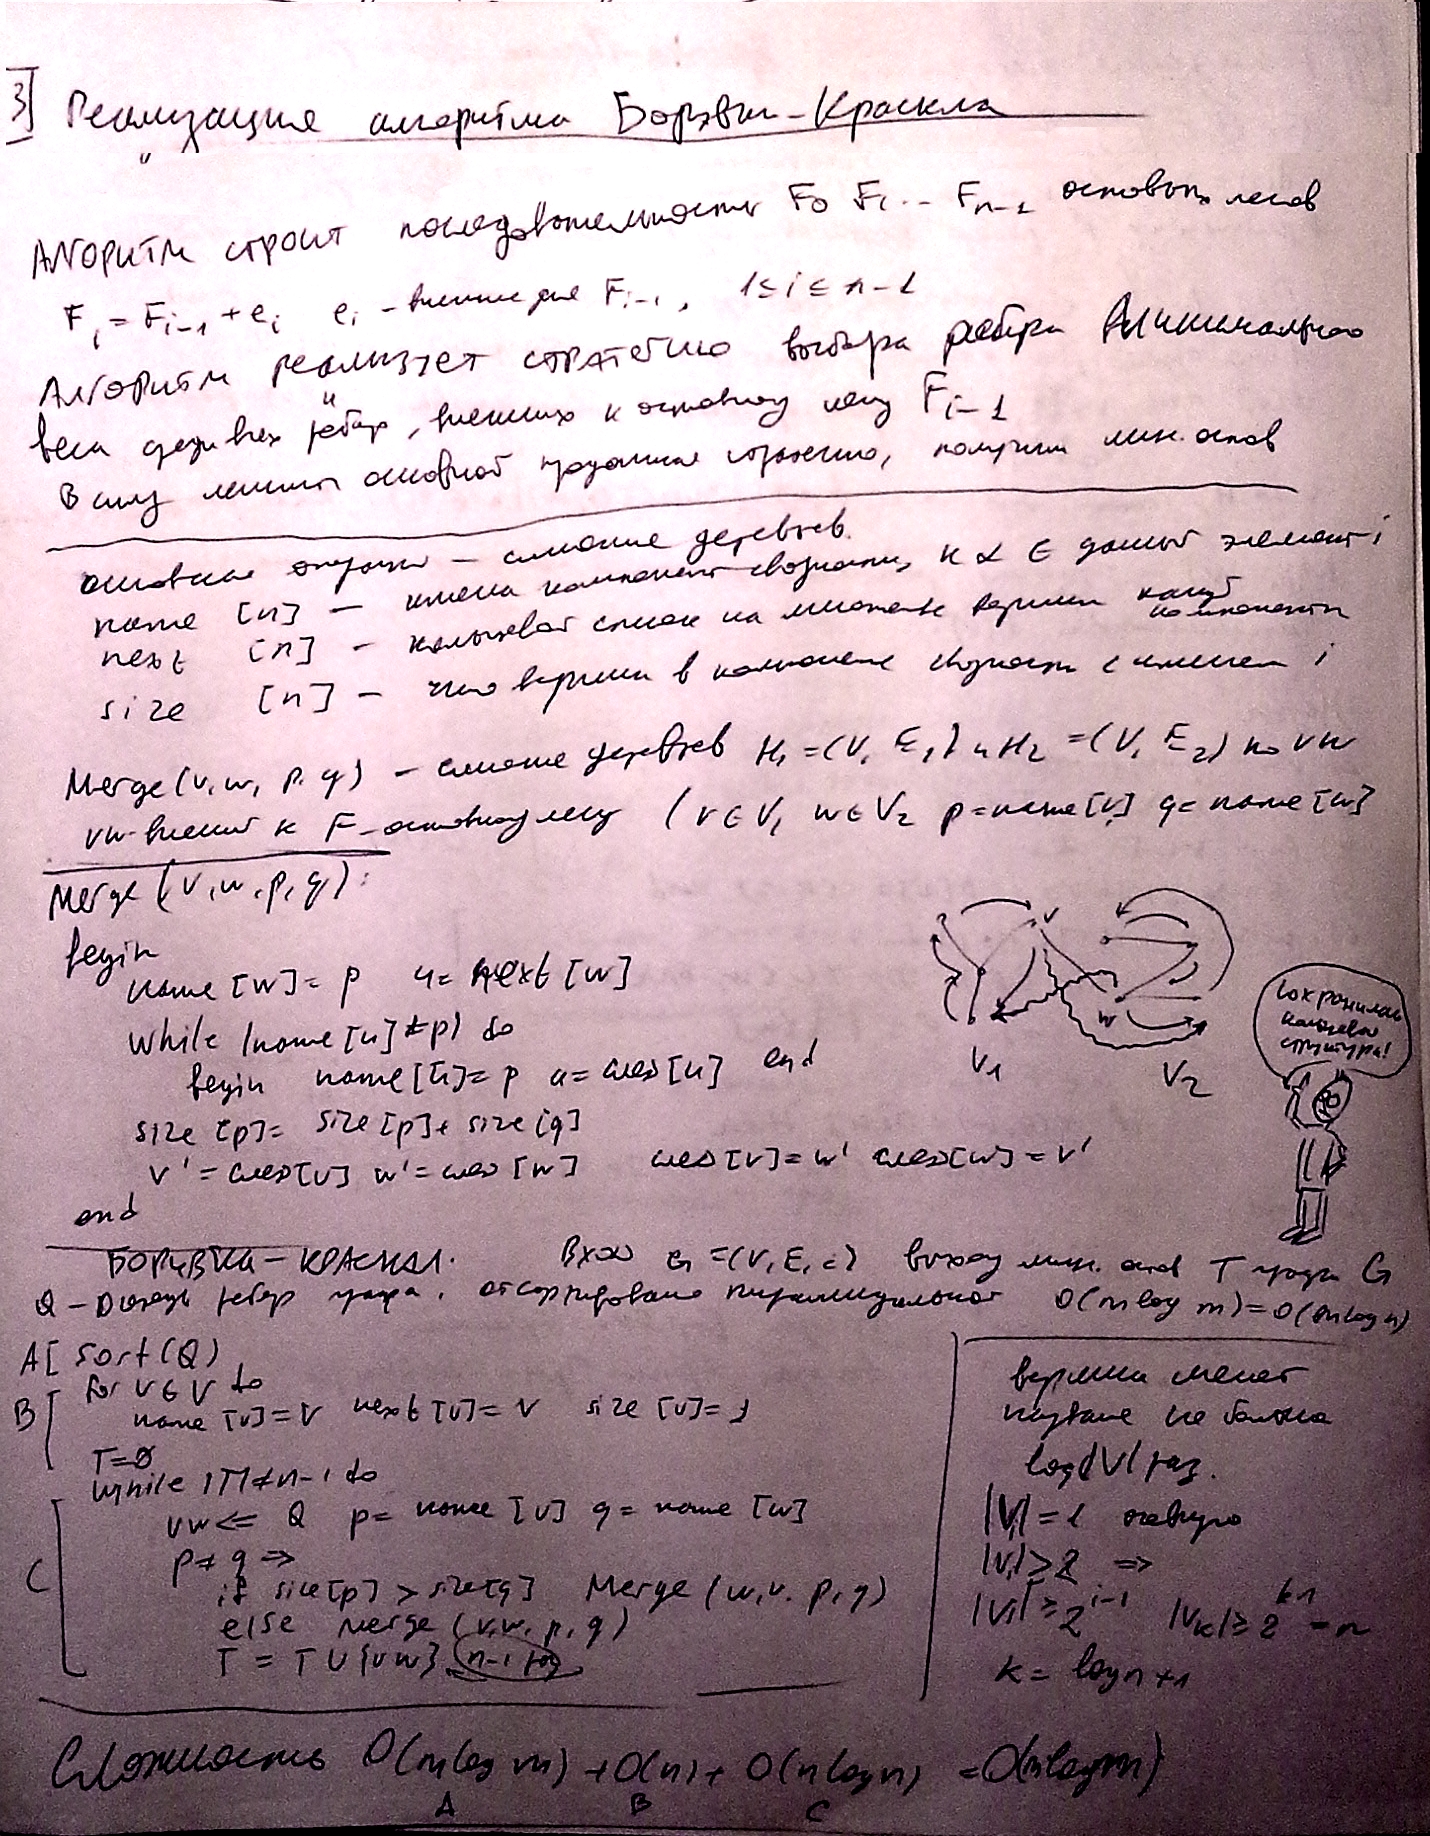 3] Реализация алгоритма Борувки-Краскла
Алгоритм строит последовательность F0 F1 .. Fn-1 остовых лесов
Fi = Fi-1 + ei ei - внешнее для Fi-1, 1 ≤ i ≤ n-1
Алгоритм реализует стратегию выбора ребра минимального
веса среди всех рёбер, внешних к остовному лесу Fi-1
В силу леммы основной, получим мин. остов
основная операция - слияние деревьев.
name [n] - имена компонент связности, к к ∈ данный элемент i
next [n] - кольцевой список на множестве вершин каждой компоненты
size [n] - число вершин в компоненте связности с именем i
Merge(v, w, p, q) - слияние деревьев H1 = (V, E1) и H2 = (V, E2) по vw
vw-внешнее к F-остовному лесу (v ∈ V1 w ∈ V2 p=name[v] q=name[w]
Merge (v, w, p, q):
begin
name [w] = p u = next [w]
while (name [u] ≠ p) do
begin name [u] = p u = след [u] end
size [p] = size [p] + size [q]
v' = след [v] w' = след [w] след [v] = w' след [w] = v'
end
V1
V2
v
w
Сохранилась
кольцевая
структура!
БОРУВКИ-КРАСКАЛ. Вход G = (V, E, c) выход мин. остов T графа G
Q - очередь рёбер графа, отсортирована пирамидальной O(m log m) = O(m log n)
A[ sort(Q)
B[ for v ∈ V do
name [v] = v next [v] = v size [v] = 1
T = ∅
while |T| ≠ n-1 do
C[ vw <= Q p = name [v] q = name [w]
p ≠ q =>
if size[p] > size[q] Merge (w, v, p, q)
else merge (v, w, p, q)
T = T ∪ {vw} n-1 раз
вершина меняет
название не больше
log|V| раз.
|V1| = 1 очевидно
|Vi| > 2 =>
|Vi| ≥ 2^i-1 |Vk| ≥ 2^k-1 = n
k = log n + 1
Сложность O(m log m) + O(n) + O(n log n) = O(m log m)
A B C